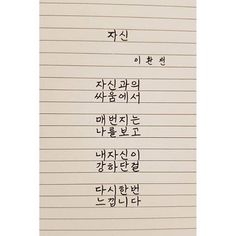 자신
이환천
자신과의
싸움에서
매번지는
나를보고
내자신이
강하단걸
다시한번
느낍니다